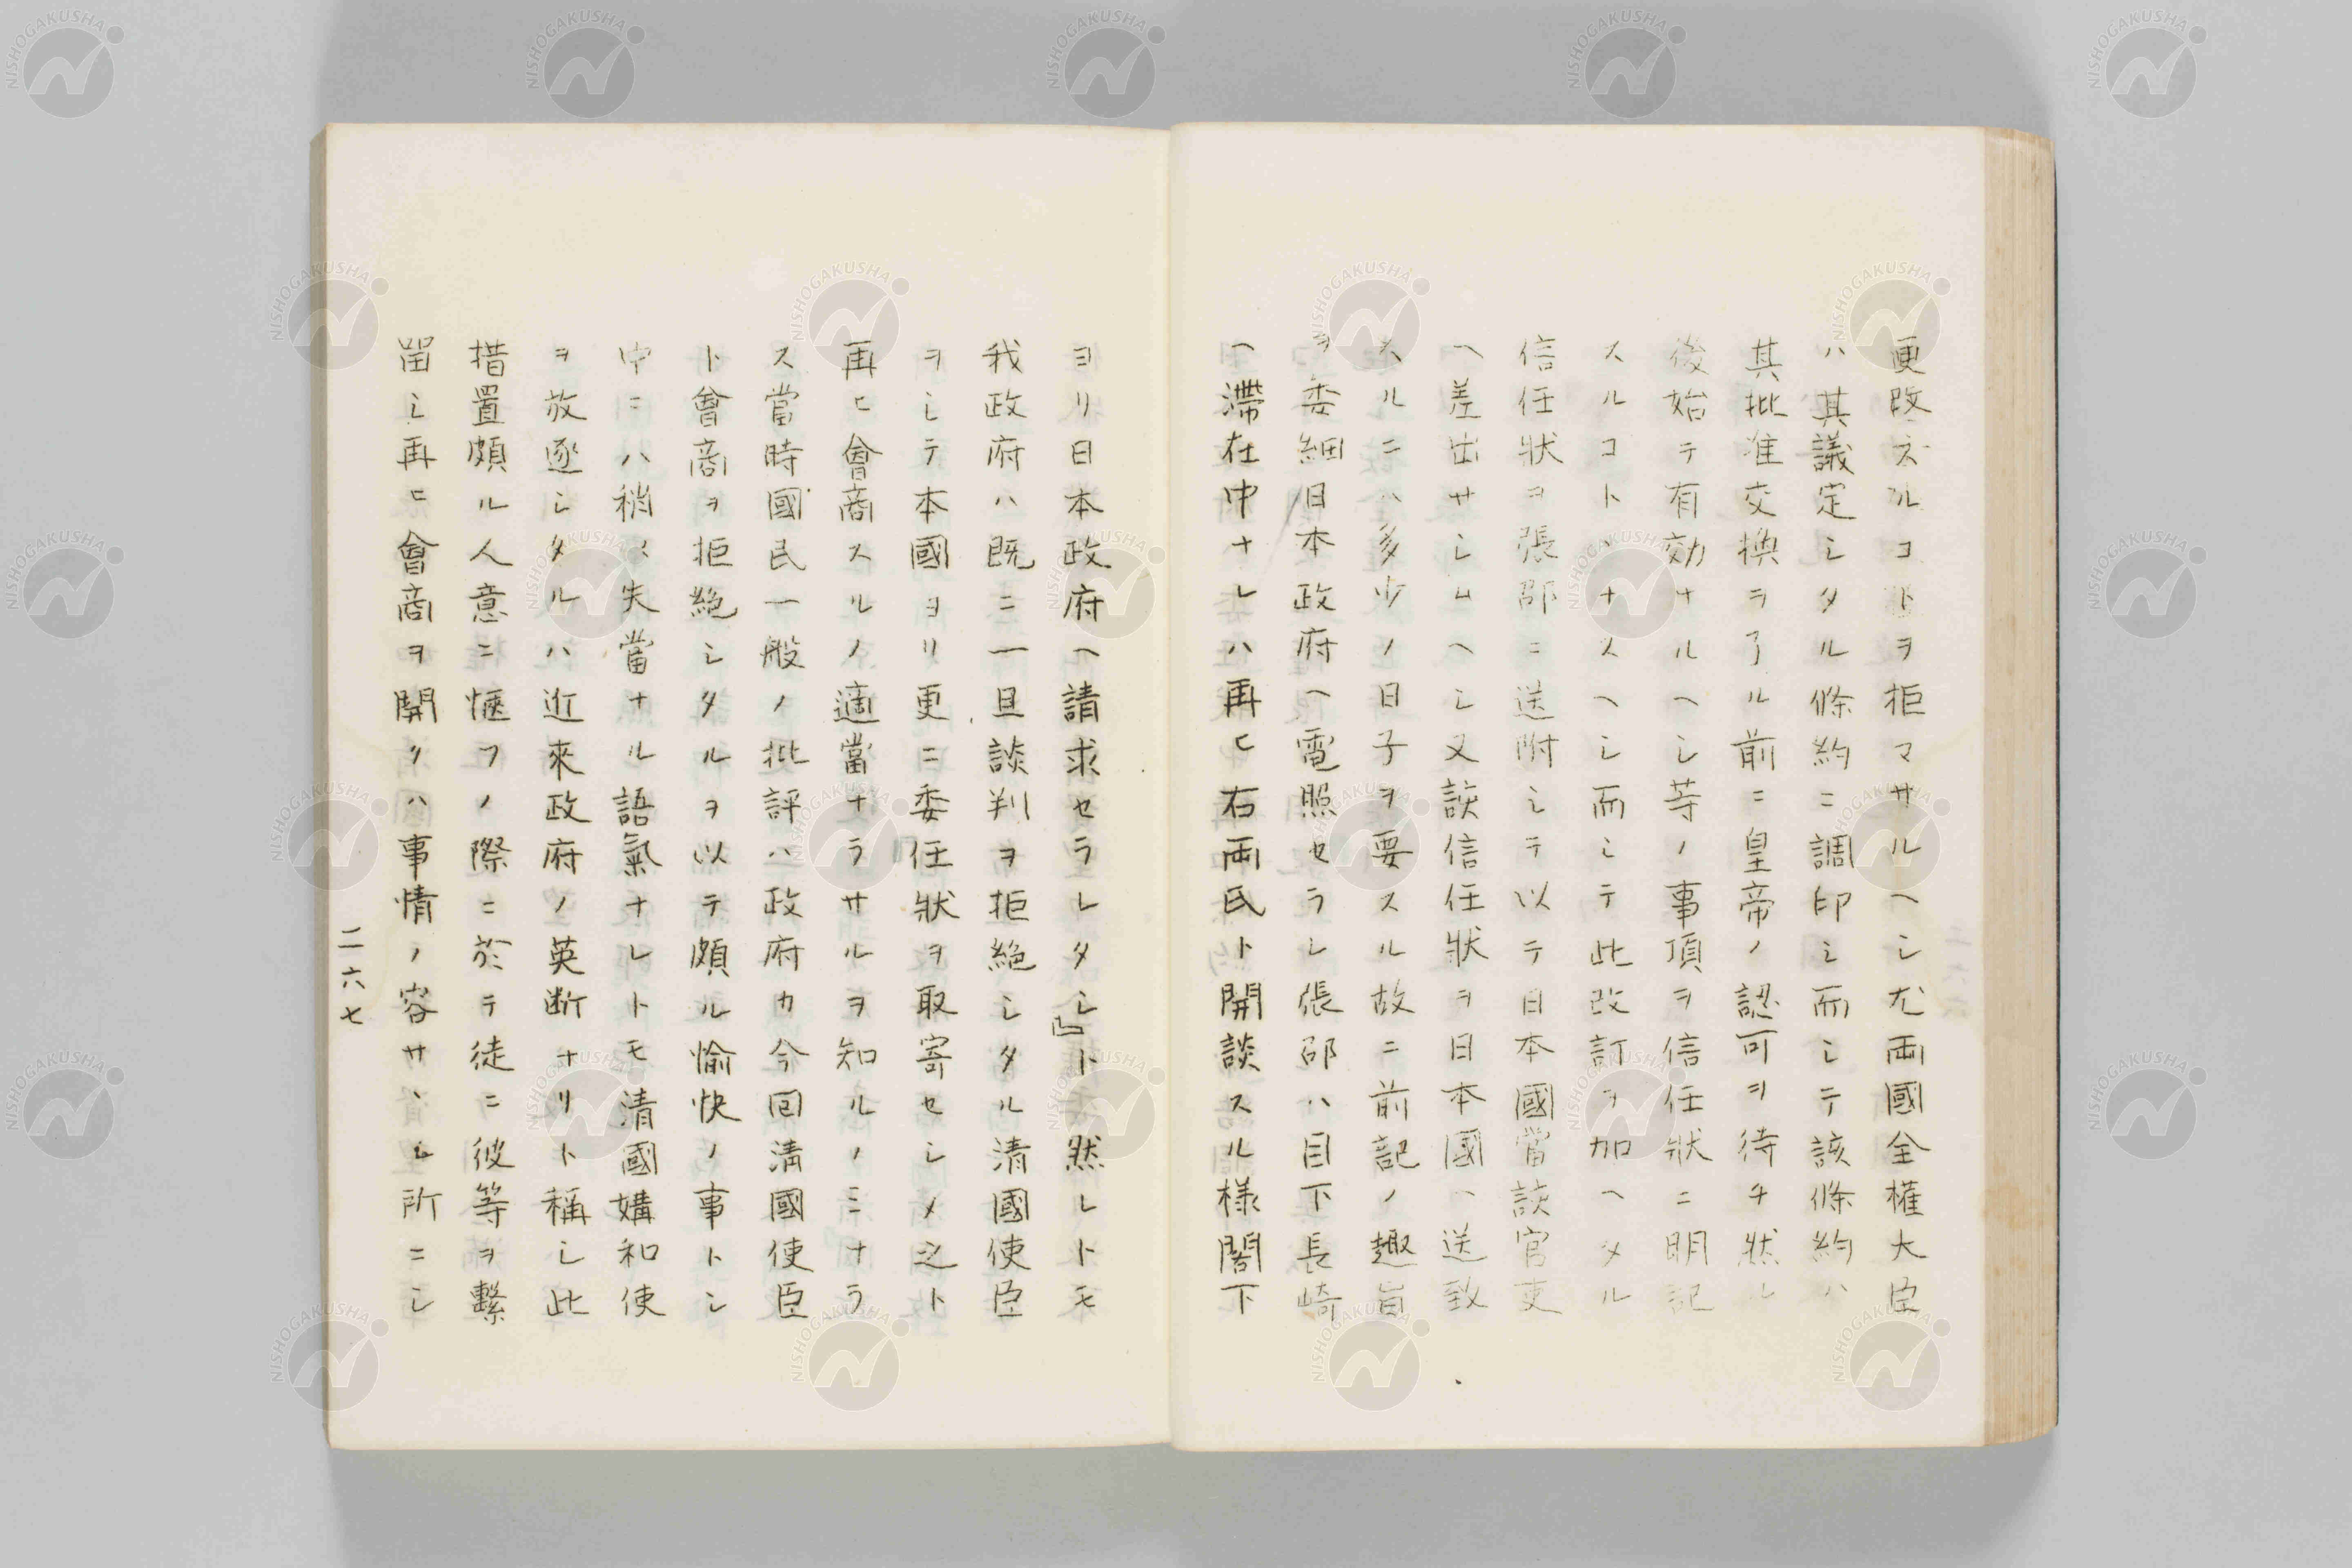 更改スルコトヲ拒マサルヘシ尤両國全權大臣
ハ其議定シタル條約ニ調印シ而シテ該條約ハ
其批准交換ヲ了ル前ニ皇帝ノ認可ヲ待チ然ル
後始テ有効ナルヘシ等ノ事項ヲ信任狀ニ明記
スルコトトナスヘシ而シテ此改訂ヲ加ヘタル
信任狀ヲ張邵ニ送附シテ以テ日本國當該官吏
ヘ差出サシムヘシ又該信任狀ヲ日本國ヘ送致
スルニハ多少ノ日子ヲ要スル故ニ前記ノ趣旨
ヲ委細日本政府ヘ電照セラレ張邵ハ目下長崎
ヘ滞在中ナレハ再ヒ右両氏ト開談スル様閣下
ヨリ日本政府ヘ請求セラレタシ』ト然レトモ
我政府ハ既ニ一旦談判ヲ拒絶シタル清國使臣
ヲシテ本國ヨリ更ニ委任狀ヲ取寄セシメ之ト
再ヒ會商スルノ適當ナラサルヲ知ルノミナラ
ス當時國民一般ノ批評ハ政府カ今回清國使臣
ト會商ヲ拒絶シタルヲ以テ頗ル愉快ノ事トシ
中ニハ稍々失當ナル語氣ナレトモ清國媾和使
ヲ放逐シタルハ近來政府ノ英断ナリト稱シ此
措置頗ル人意ニ愜フノ際ニ於テ徒ニ彼等ヲ繫
畱シ再ヒ會商ヲ開クハ事情ノ容サヽル所ニシ
二六七
NISHOGAKUSHA